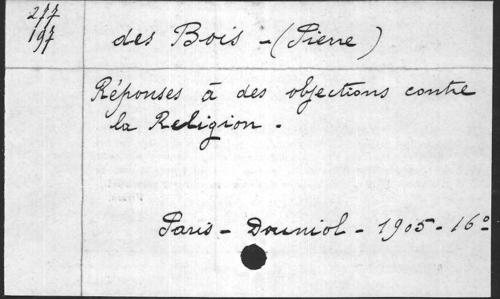 277
197
des Bois - (Pierre)
Réponses à des objections contre
la Religion.
Paris - Douniol - 1905 - 16º